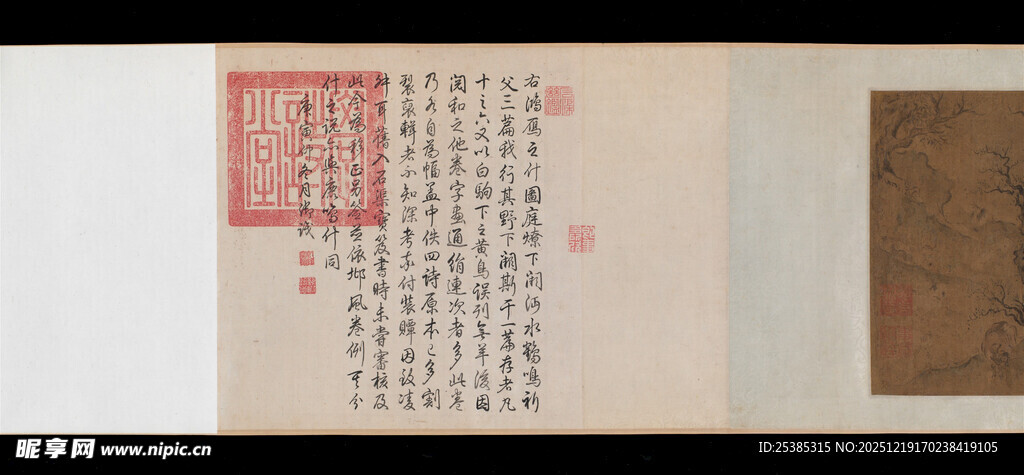 右鴻雁之什圖庭燎下闕沔水鶴鳴祈
父三篇我行其野下闕斯干一篇存者凡
十之六又以白駒下之黃鳥誤列無羊後因
閱和之他卷字畫通絹連次者多此卷
乃各自為幅蓋中佚四詩原本已多割
裂裒輯者不知深考率付裝贉因致凌
舛耳舊入石渠寶笈書時未嘗審核及
此今為移正另簽並依邶風卷例其分
什之說亦與鹿鳴什同
庚寅仲冬月御識
昵享网 www.nipic.cn
ID:25385315 NO:20251219170238419105